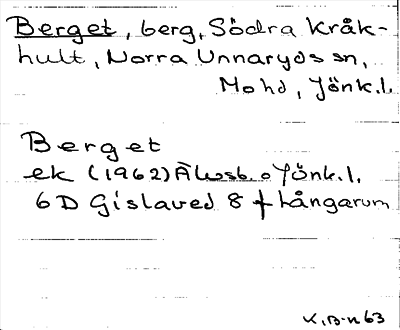 Berget, berg, Södra Kråk-
hult, Norra Unnaryds sn,
Mohd, Jönk.l.
Berget
ek (1962) Älvsb. o Jönk.l.
6 D Gislaved 8 f Långarum
K.B-n 63